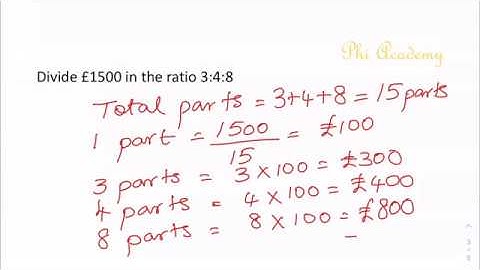 Phi Academy
Divide £1500 in the ratio 3:4:8
Total parts = 3+4+8 = 15 parts
1 part = 1500/15 = £100
3 parts = 3 × 100 = £300
4 parts = 4 × 100 = £400
8 parts = 8 × 100 = £800